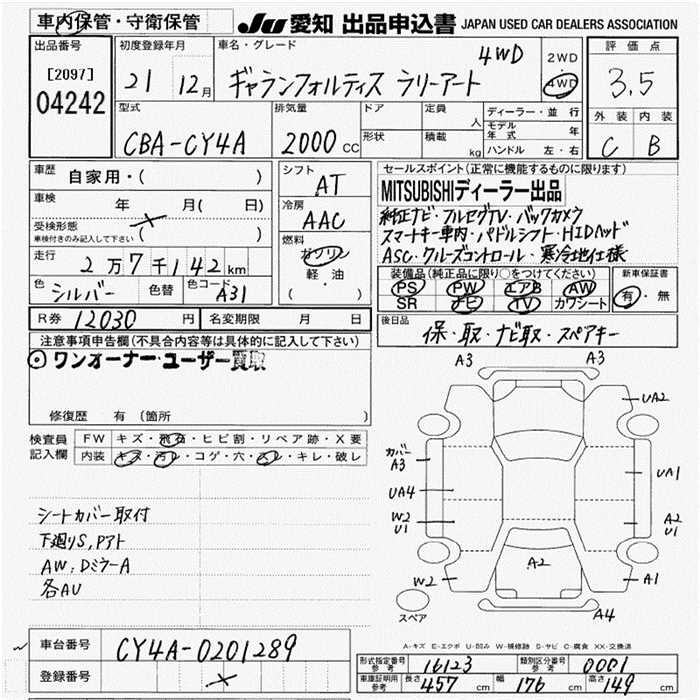 車内保管・守衛保管
JU 愛知 出品申込書 JAPAN USED CAR DEALERS ASSOCIATION
出品番号
[2097]
04242
初度登録年月
21 12月
車名・グレード
4WD
ギャランフォルティス ラリーアート
2WD
4WD
評価点
3.5
外装 内装
C B
型式
CBA-CY4A
排気量
2000 CC
ドア
形状
定員
人
積載
kg
ディーラー・並行
モデル年式 年
ハンドル 左・右
車歴
自家用・( )
車検
年 月( 日)
受検形態
車検付きのみ記入して下さい ( )
走行
2万7千142km
色
シルバー
色替
色コード
A31
シフト
AT
冷房
AAC
燃料
ガソリン
軽・油
( )
セールスポイント(正常に機能するものに限り)
MITSUBISHIディーラー出品
純正ナビ・フルセグTV・バックカメラ
スマートキー車内・パドルシフト・HIDヘッド
ASC・クルーズコントロール・寒冷地仕様
装備品(純正品に限り○をつけてください)
PS PW エアB AW
SR ナビ TV カワシート
新車保証書
有・無
R券 12030 円
名変期限 月 日
後日品
保・取・ナビ取・スペアキー
注意事項申告欄(不具合内容等は具体的に記入して下さい)
ワンオーナー・ユーザー買取
修復歴 有 (箇所
検査員記入欄
FW キズ・飛石・ヒビ割・リペア跡・X要
内装 キズ・汚レ・コゲ・穴・スレ・キレ・破レ
シートカバー取付
下廻りS,Pアト
AW,DミラーA
各AU
A3 A3
UA2
カバー
A3
UA1
UA4
W2
U1
A2
U1
A2
W2 A1
スペア
A4
A-キズ E-エクボ U-凹み W-補修跡 S-サビ C-腐食 XX-交換済
車台番号
CY4A-0201289
登録番号
形式指定番号
参考
16123
類別区分番号
参考
0001
車庫証明用
参考
長さ 457 cm 幅 176 cm 高さ 149 cm